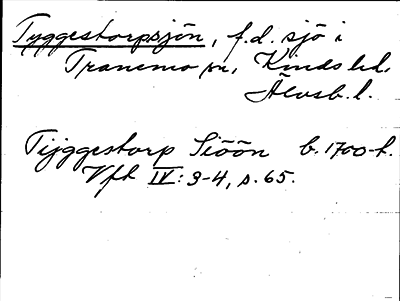 Tyggestorpsjön, f.d. sjö i
Tranemo sn, Kinds hd,
Älvsb. l.
Tijggestorp Siöön b. 1700-t.
Vft IV: 3-4, s. 65.